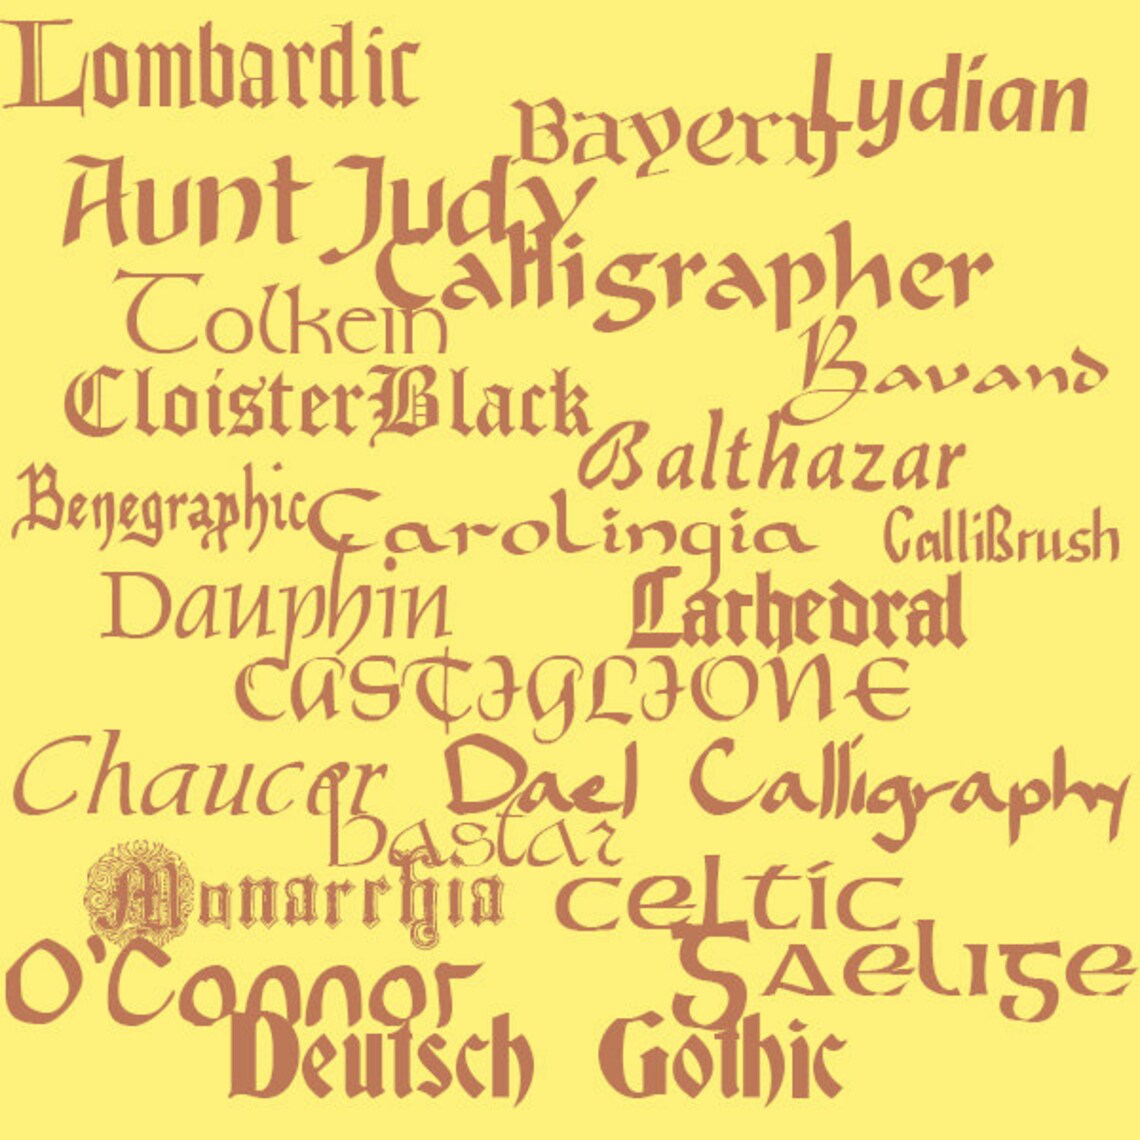 Lombardic
Lydian
Bayern
Aunt Judy
Calligrapher
Tolkein
Bavand
CloisterBlack
Balthazar
Benegraphic
Carolingia
CalliBrush
Dauphin
Cathedral
CASTIGLIONE
Chaucer
Dael Calligraphy
bastar
Monarchia
celtic
Gaelige
O'Connor
Deutsch Gothic